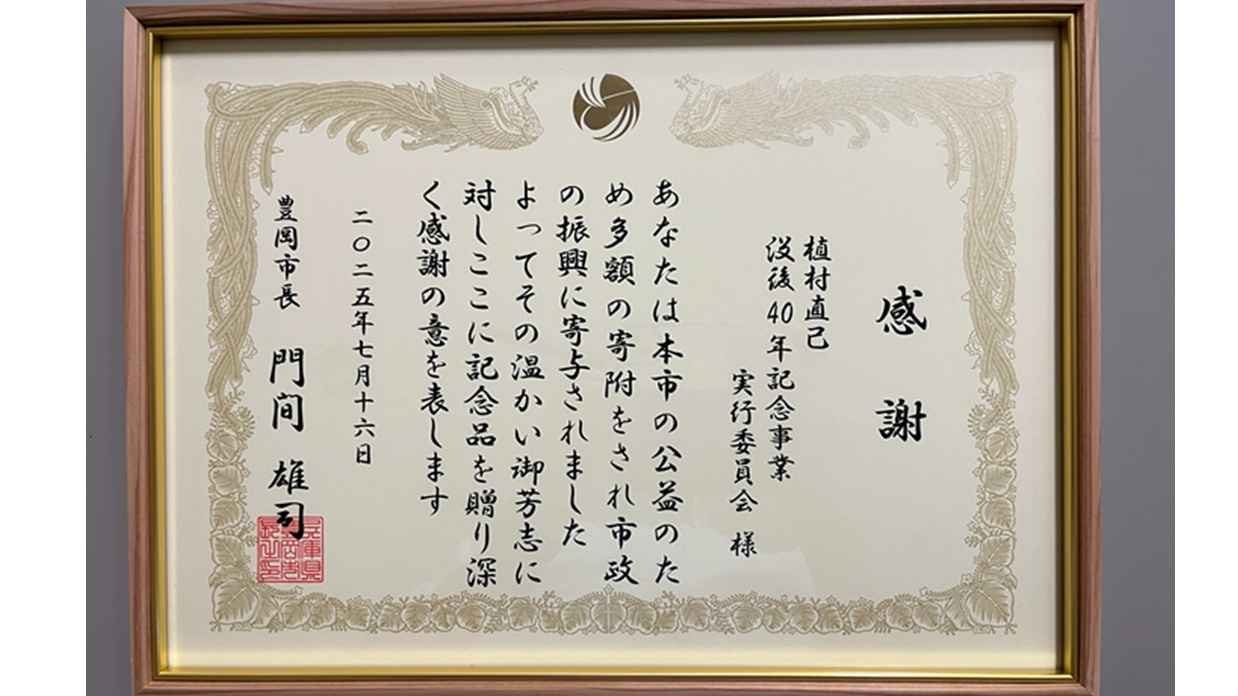 感謝
植村直己
没後40年記念事業
実行委員会 様
あなたは本市の公益のた
め多額の寄附をされ市政
の振興に寄与されました
よってその温かい御芳志に
対しここに記念品を贈り深
く感謝の意を表します
二〇二五年七月十六日
豊岡市長 門間雄司